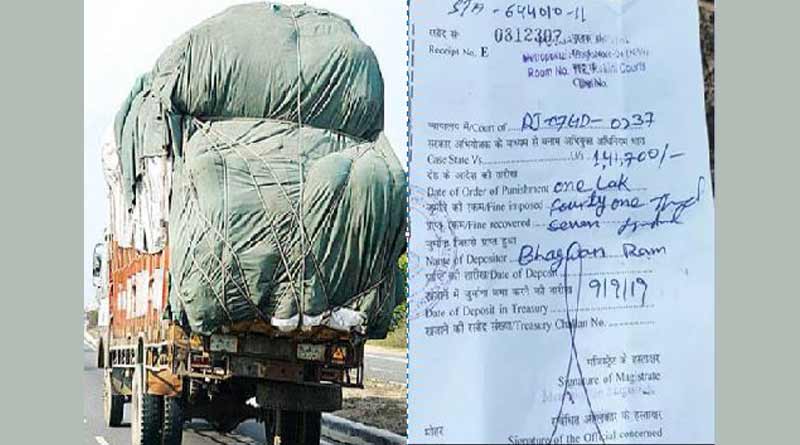 STA-644010-11
रसीद सं० 0312307
Receipt No. E
Room No. Courts
न्यायालय में/Court of RJ-07GD-0237
सरकार अभियोजक के माध्यम से बनाम अभियुक्त अधिनियम धारा
Case State Vs. U/S 141,700/-
दंड के आदेश की तारीख
Date of Order of Punishment one Lak
जुर्माने की रकम/Fine imposed fourty one
प्राप्त रकम/Fine recovered seven
जुर्माना जिससे प्राप्त हुआ
Name of Depositor Bhagwan Ram
प्राप्ति की तारीख/Date of Deposit
खजाने में जुर्माना जमा करने की तारीख 9/9/19
Date of Deposit in Treasury
खजाने की रसीद संख्या/Treasury Challan No.
मजिस्ट्रेट के हस्ताक्षर
Signature of Magistrate
संबंधित अहलकार के हस्ताक्षर
मोहर Signature of the Official concerned